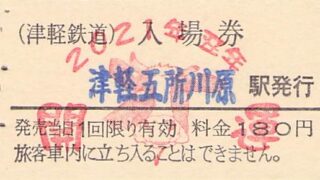 (津軽鉄道) 入場券
2021年丑年
津軽五所川原 駅発行
開 運
発売当日1回限り有効 料金180円
旅客車内に立ち入ることはできません。